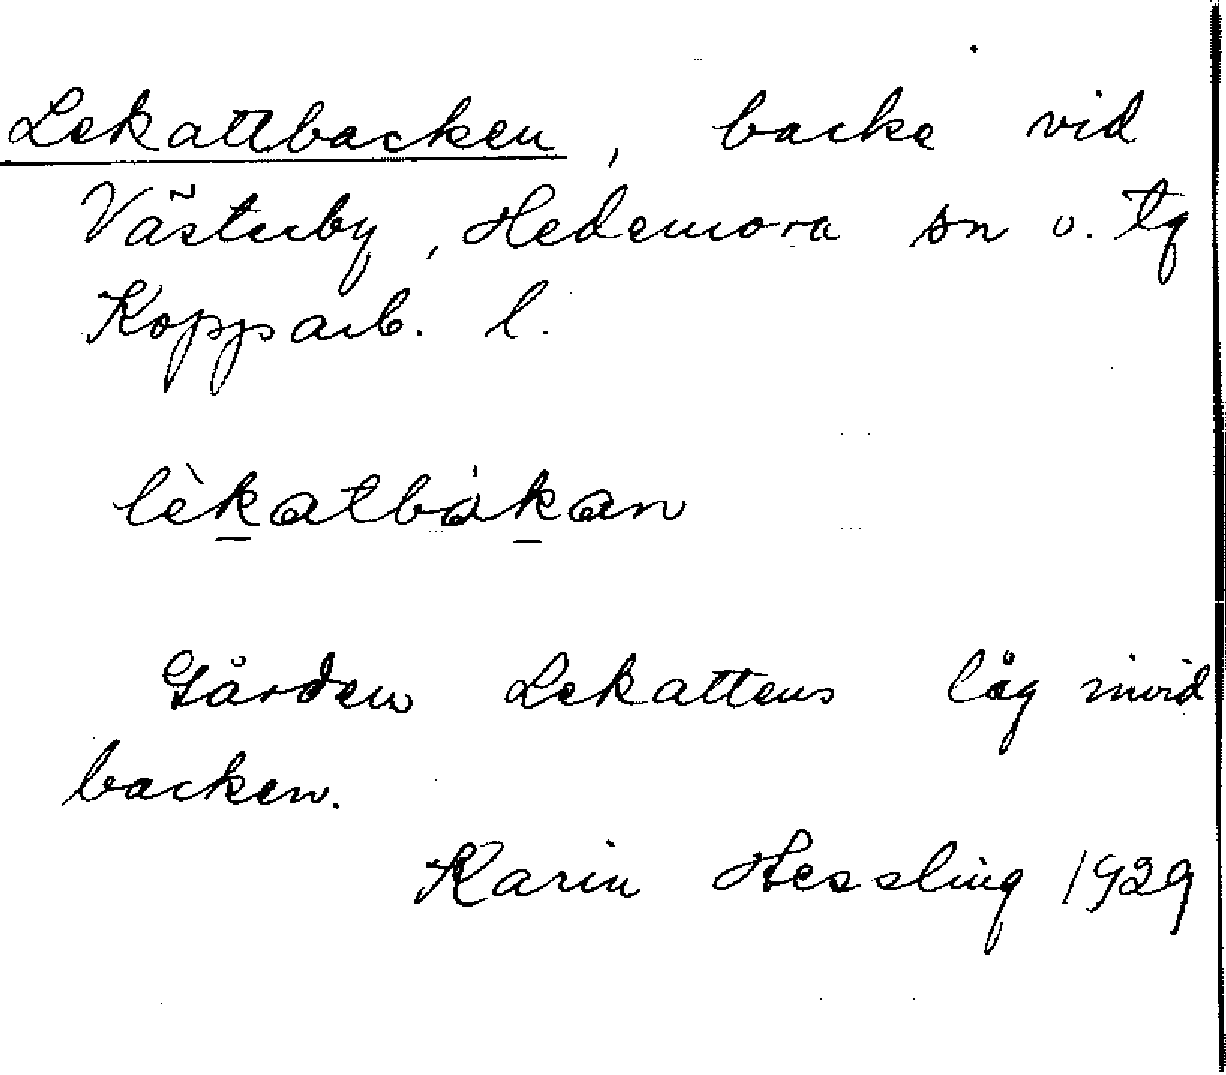 Lekattbacken, backe vid
Västerby, Hedemora sn o. tg
Kopparb. l.
lèkatbákan
Gården Lekattens låg invid
backen.
Karin Hessling 1929